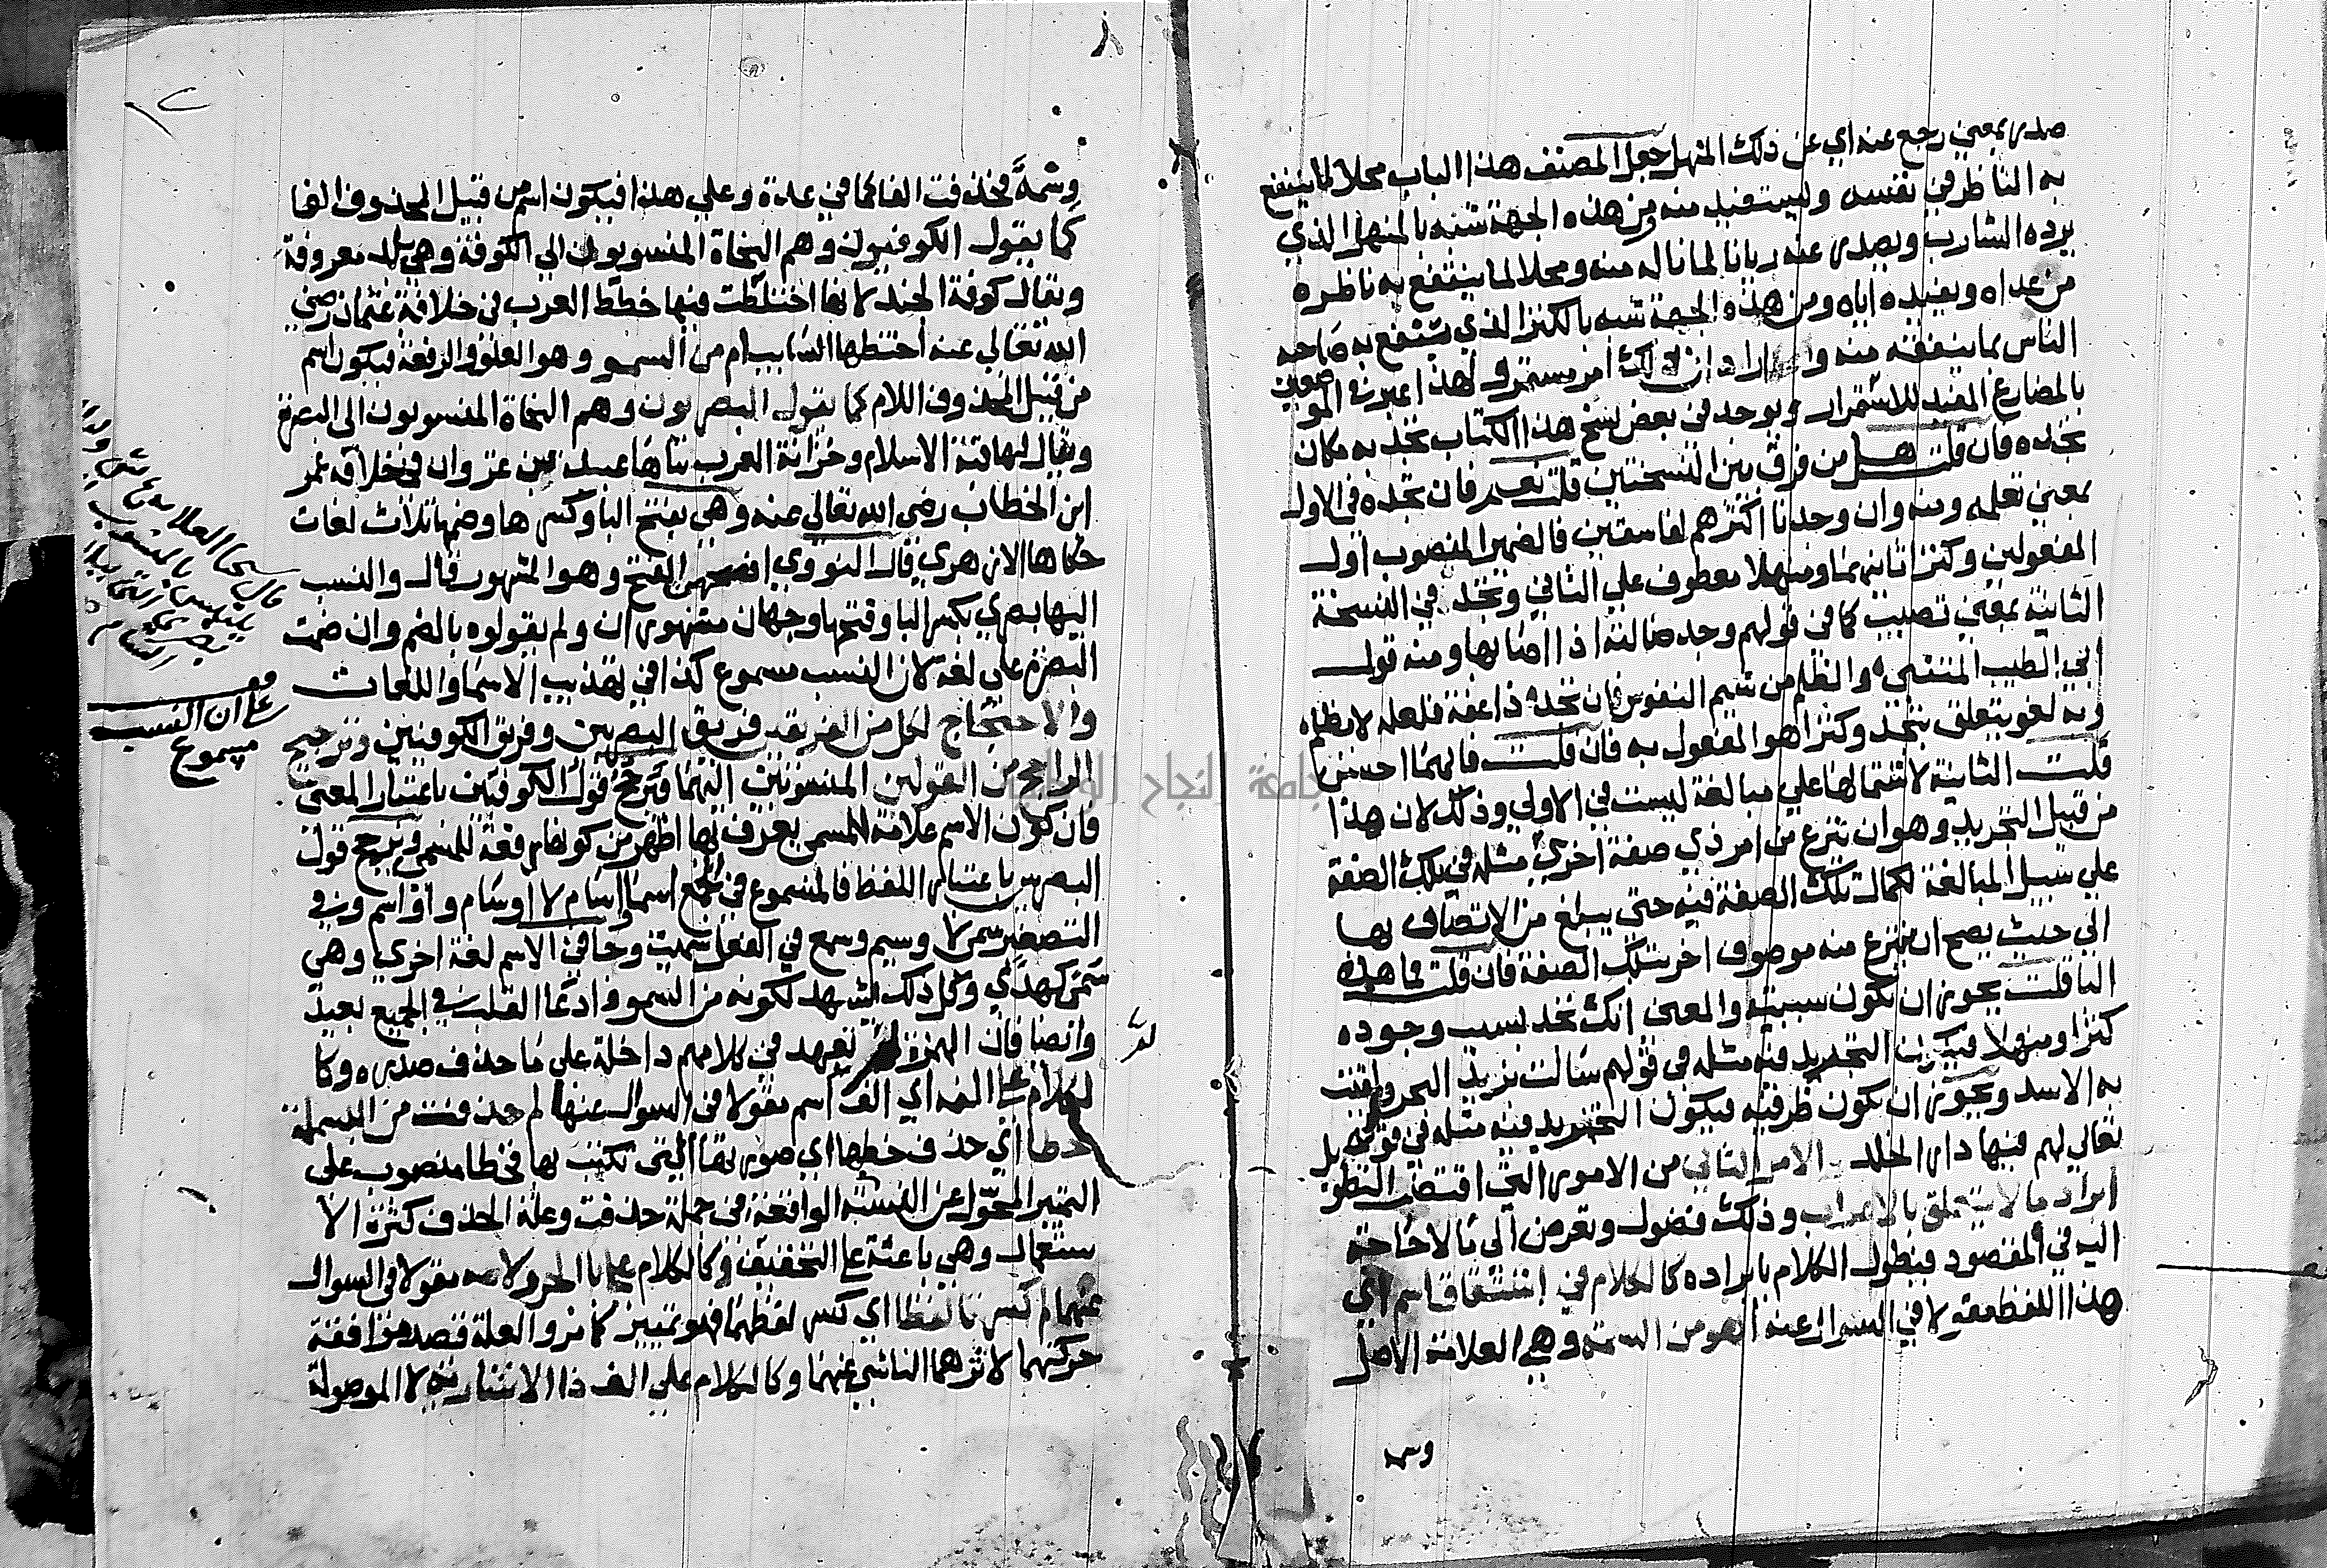 صدر بمعني رجع عنه اي عن ذلك المنهل جعل المصنف هذا الباب محلا لما ينتفع
به الناظر في نفسه ويستفيد منه ومن هذه الجهة شبه بالمنهل الذي
يرده الشارب ويصدر عنه ريانا لما ناله منه ومحلا لما ينتفع به ناظره
من عداه ويفيده اياه ومن هذه الجهة شبه بالكنز الذي ينتفع به صاحبه
الناس بما ينفقه منه واراد ان ذلك امر مستمر ولهذا عبر في الموضعين
بالمضارع المفيد للاستمرار ويوجد في بعض نسخ هذا الكتاب تجد به مكان
تجده فان قلت هل من فرق بين النسختين قلت نعم فان تجده في الاول
بمعني تعلمه ومنه وان وجدنا اكثرهم لفاسقين فالضمير المنصوب اول
المفعولين وكنزا ثانيهما ومنهلا معطوف علي الثاني وتجد في النسخة
الثانية بمعني تصيب كما في قولهم وجد ضالته اذا اصابها ومنه قول
ابي الطيب المتنبي والظلم من شيم النفوس فان تجد ذا عفة فلعله لا يظلم
وبه لغو يتعلق بتجد وكنزا هو المفعول به فان قلت فايهما احسن
قلت الثانية لاشتمالها علي مبالغة ليست في الاولي وذلك لان هذا
من قبيل التجريد وهو ان تنزع من امر ذي صفة اخري مثله في تلك الصفة
علي سبيل المبالغة لكمال تلك الصفة فيه حتي يبلغ من الاتصاف بها
الي حيث يصح ان ينتزع منه موصوف اخر بتلك الصفة فان قلت فما هذه
البا قلت يجوز ان تكون سببية والمعني انك تجد بسبب وجوده
كنزا ومنهلا فيكون التجريد فيه مثله في قولهم سالت بزيد البحر ولقيت
به الاسد ويجوز ان تكون ظرفية فيكون التجريد فيه مثله في قوله
تعالي لهم فيها دار الخلد الامر الثاني من الامور التي اقتضت التطويل
ايراد ما لا يتعلق بالاعراب وذلك فضول وتعرض الي ما لا حاجة
اليه في المقصود فيطول الكلام بايراده كالكلام في اشتقاق اسم اي
هذا اللفظ مقولا في السوال عنه اهو من السمة وهي العلامة الاصل
وس
وسمة فحذفت الفا كما في عدة وعلي هذا فيكون اسم من قبيل المحذوف الفا
كما يقول الكوفيون وهم النحاة المنسوبون الي الكوفة وهي بلد معروفة
ويقال كوفة الجند لانها اختطت فيها خطط العرب في خلافة عثمان رضي
الله تعالي عنه اختطها السائب ام من السمو وهو العلو والرفعة فيكون اسم
من قبيل المحذوف اللام كما يقول البصريون وهم النحاة المنسوبون الي البصرة
ويقال لها قبة الاسلام وخزانة العرب بناها عتبة بن غزوان في خلافة عمر
ابن الخطاب رضي الله تعالي عنه وهي بفتح البا وكسرها وضمها ثلاث لغات
حكاها الازهري قال النووي افصحهن الفتح وهو المشهور قال والنسب
اليها بصري بكسر البا وفتحها وجهان مشهوران ولم يقولوه بالضم وان ضمت
البصرة علي لغة لان النسب مسموع كذا في تهذيب الاسما واللغات
والاحتجاج لكل من الفريقين فريق البصريين وفريق الكوفيين وترجيح
الراجح من القولين المنسوبين اليهما فترجح قول الكوفيين باعتبار المعني
فان كون الاسم علامة للمسمي يعرف بها اظهر من كونها رفعة للمسمي ويرجح قول
البصريين باعتبار اللفظ فالمسموع في الجمع اسما واسام لا اوسام واواسم وفي
التصغير سمي لا وسيم وسمع في الفعل سميت وجا في الاسم لغة اخري وهي
سمي كهدي وكل ذلك يشهد لكونه من السمو وادعا القلب في الجميع بعيد
وايضا فان الهمزة لم تعهد في كلامهم داخلة علي ما حذف صدره وكا
لكلام علي الفه اي الف اسم مقولا في السوال عنها لم حذفت من البسملة
خطا اي حذف خطها اي صورتها التي تكتب بها فخطا منصوب علي
التمييز المحول عن النسبة الواقعة في جملة حذفت وعلة الحذف كثرة الا
ستعمال وهي باعثة علي التخفيف وكالكلام علي با الجر ولامه مقولا في السوال
عنهما لم كسرتا لفظا اي كسر لفظهما فهو تمييز كما مر والعلة قصد موافقة
حركتهما لاثرهما الناشي عنهما وكالكلام علي الف ذا الاشارية لا الموصولة
علي ان النسب
مسموع
جامعة النجاح الوطنية